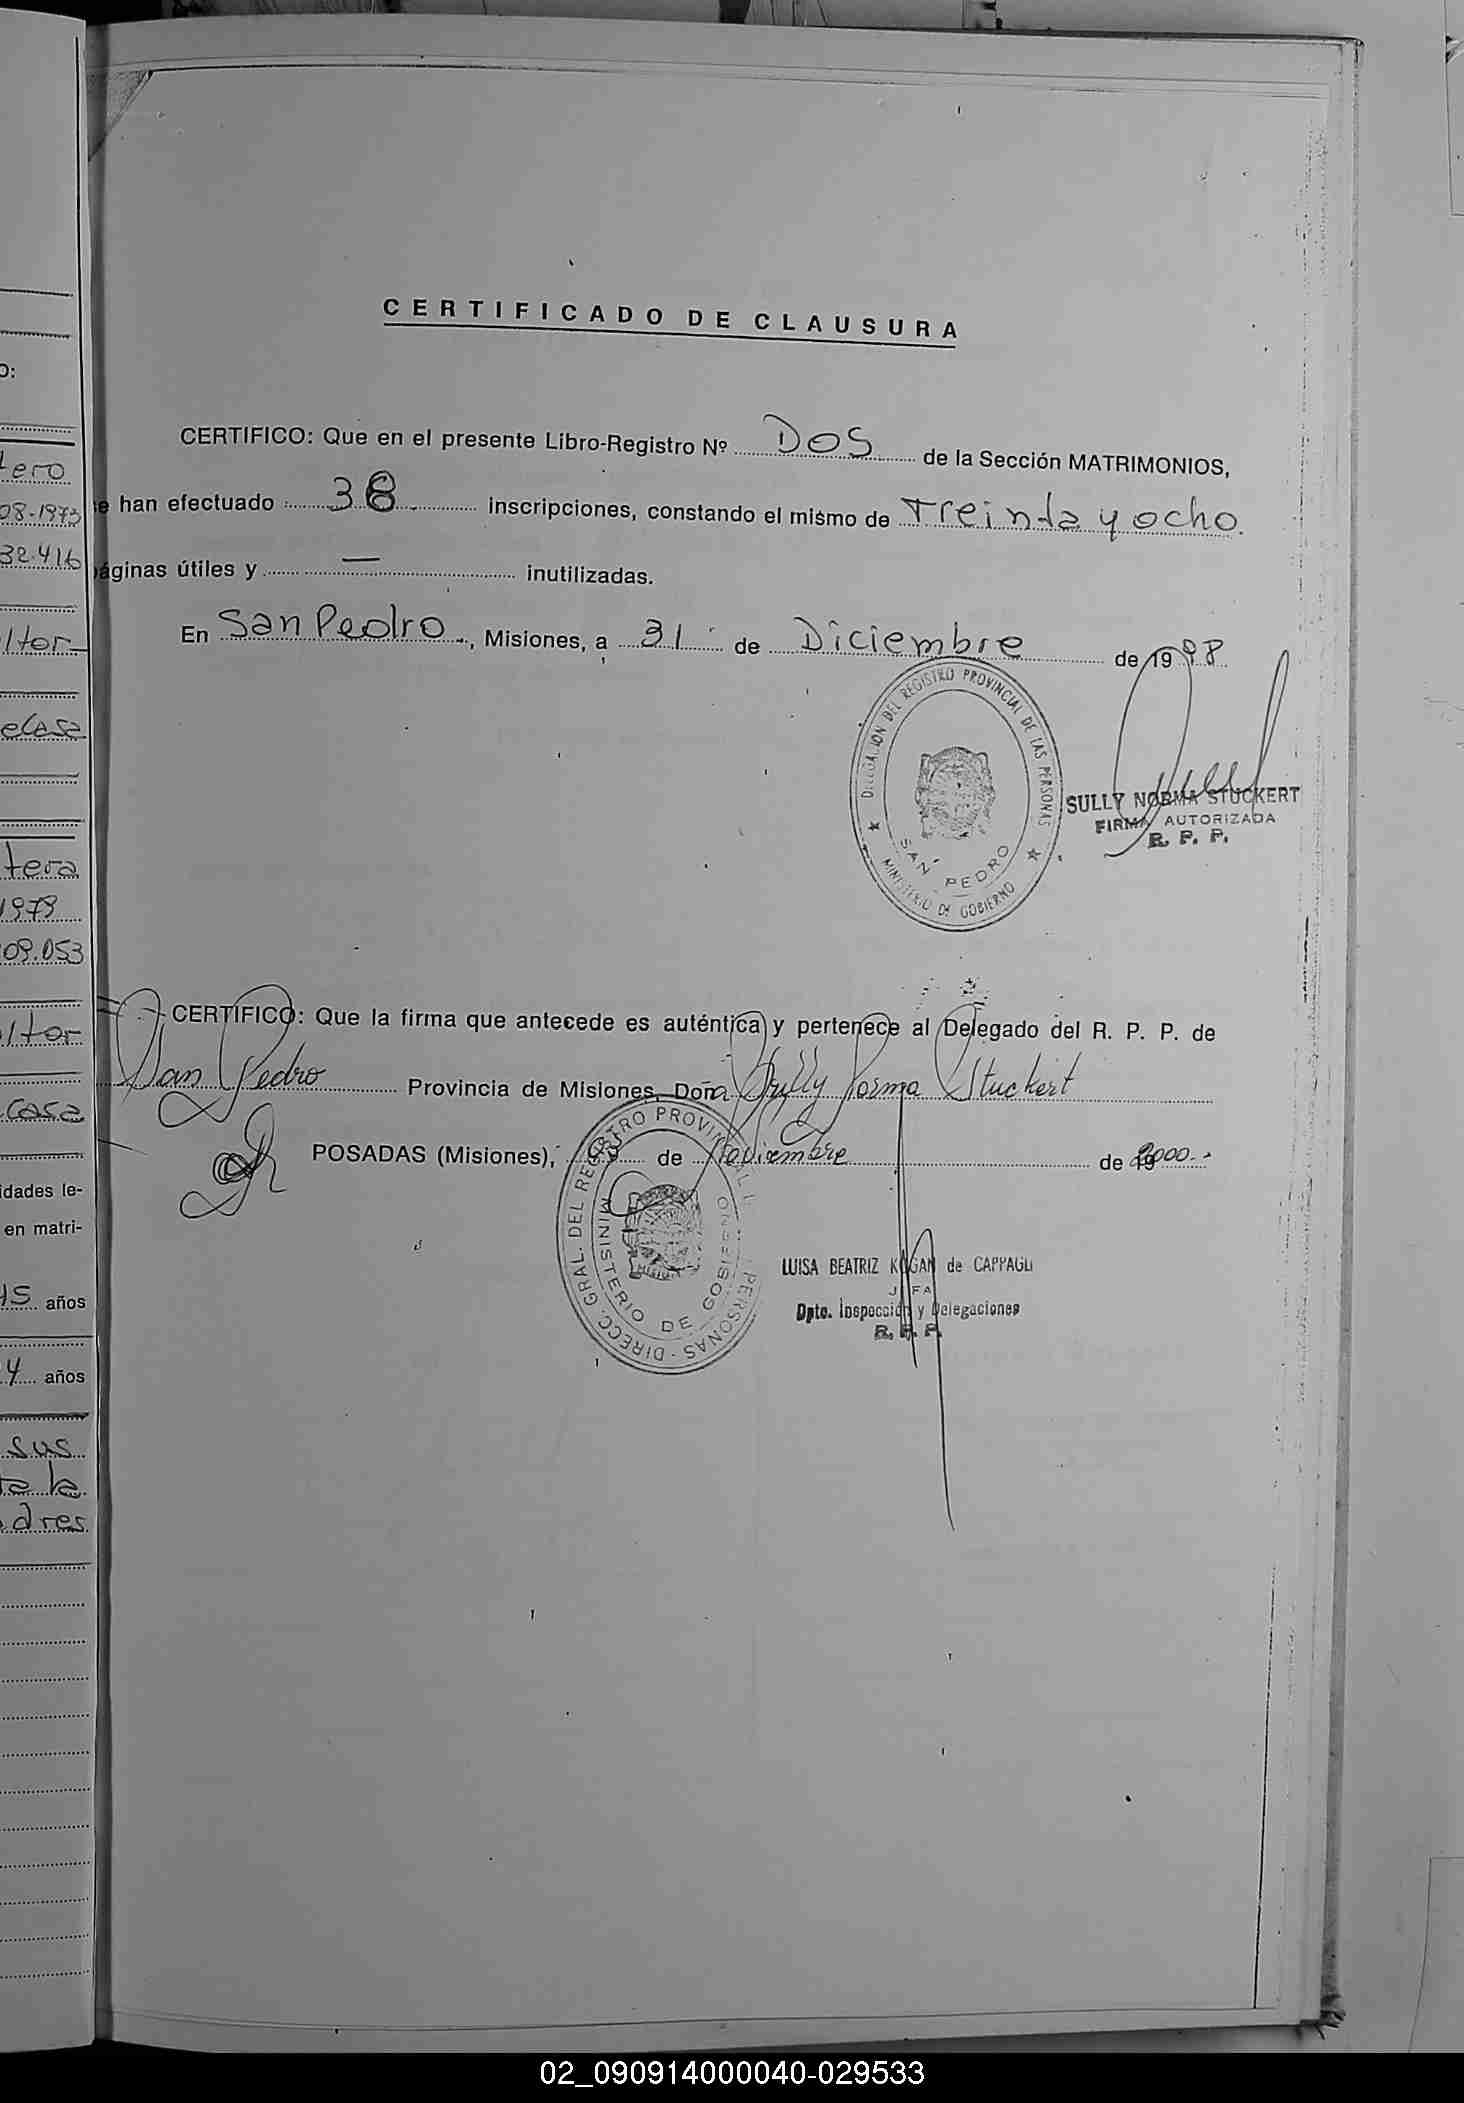 CERTIFICADO DE CLAUSURA
CERTIFICO: Que en el presente Libro-Registro Nº DOS de la Sección MATRIMONIOS,
se han efectuado 38 inscripciones, constando el mismo de Treinta y ocho
páginas útiles y — inutilizadas.
En San Pedro, Misiones, a 31 de Diciembre de 1998
DELEGACION DEL REGISTRO PROVINCIAL DE LAS PERSONAS
SAN PEDRO
MINISTERIO DE GOBIERNO
SULLY NORMA STUCKERT
FIRMA AUTORIZADA
R. P. P.
CERTIFICO: Que la firma que antecede es auténtica y pertenece al Delegado del R. P. P. de
San Pedro Provincia de Misiones, Doña Sully Norma Stuckert
POSADAS (Misiones), de Noviembre de 19 2000
DIRECC. GRAL. DEL REGISTRO PROVINCIAL PERSONAS
MINISTERIO DE GOBIERNO
LUISA BEATRIZ KOGAN de CAPPAGLI
JEFA
Dpto. Inspección y Delegaciones
R. P. P.
O:
tero
08-1973
32.416
ltor
e casa
tera
1979
09.053
ltor
casa
idades le-
en matri-
45 años
4 años
sus
ta la
adres
02_090914000040-029533